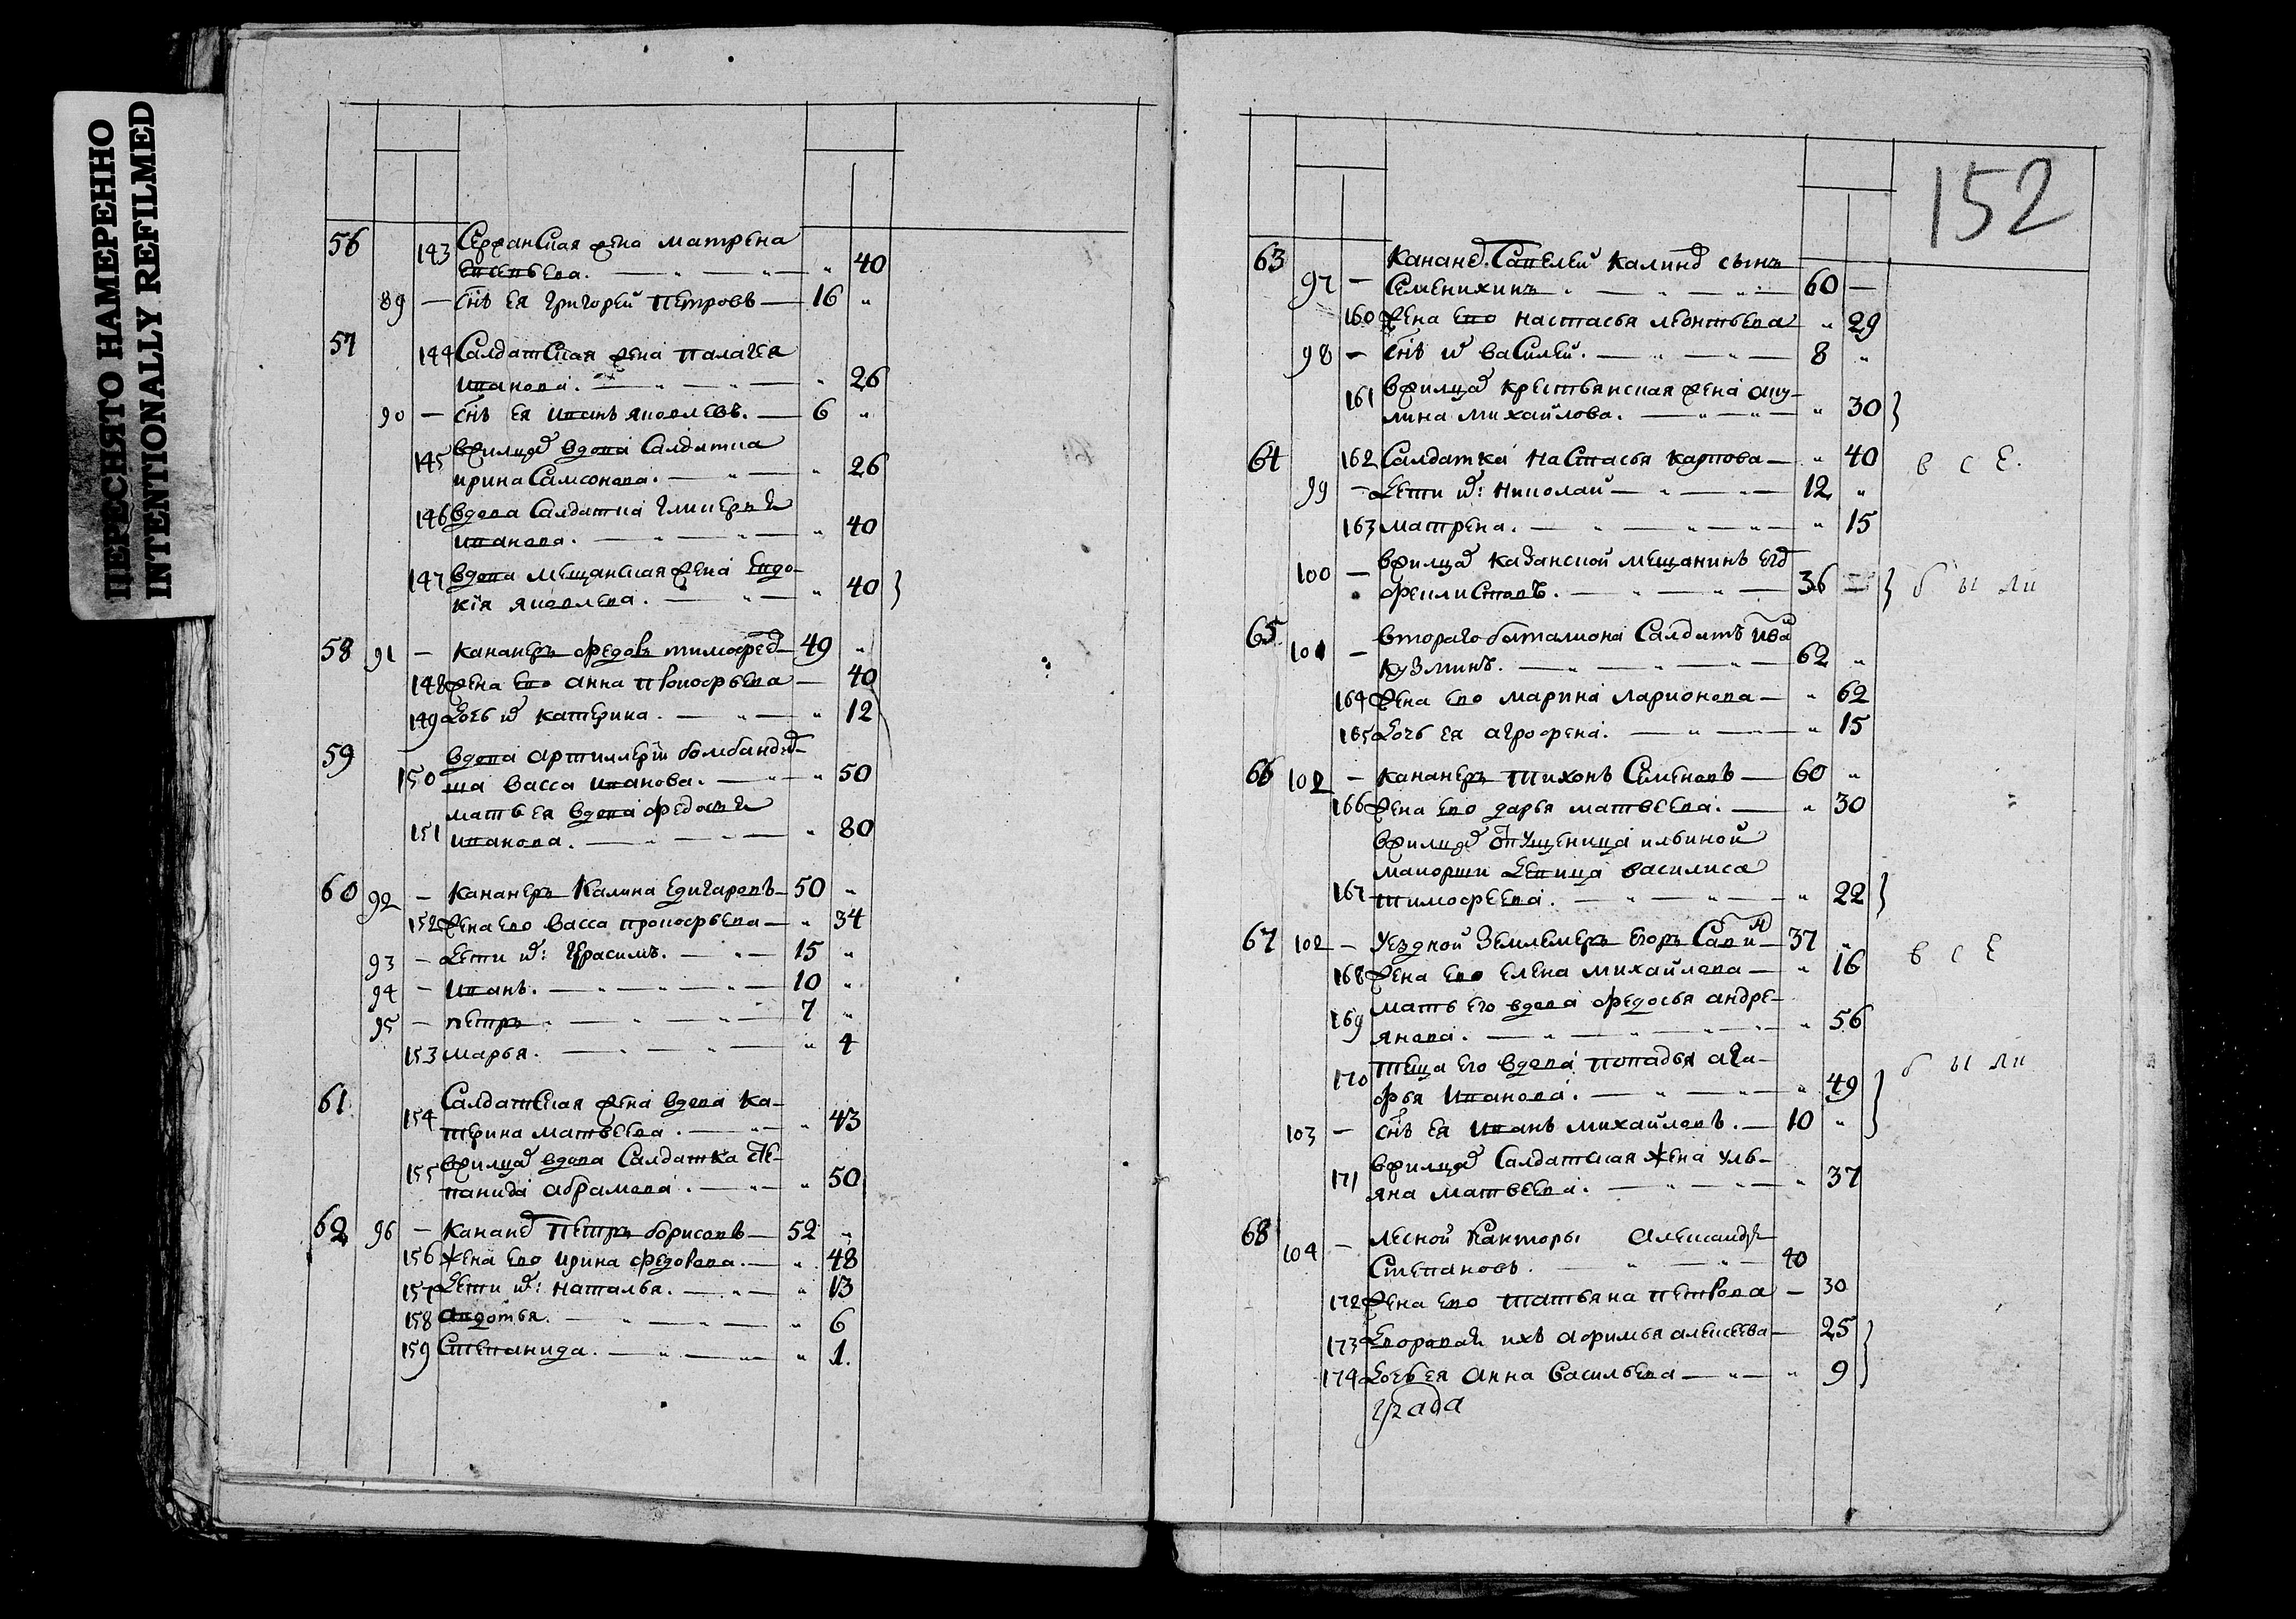 ПЕРЕСНЯТО НАМЕРЕННО
INTENTIONALLY REFILMED
56 143 Сержанская жена матрена
40
89 — снъ ея григорей петровъ — 16 „
57 144 Салдатская жена палагея
иванова. — „ — „ — „ 26
90 — снъ ея иванъ яковлевъ. — 6 „
145 вжилцахъ вдова Салдатка
ирина Самсонова. — „ — „ 26
146 вдова Салдатка гликерья
иванова. — „ — „ — „ 40
147 вдова мещанская жена Евдо-
кїя яковлева. — „ — „ 40 }
58 91 — кананеръ федоръ тимофеев — 49 „
148 жена ево анна прокофьева — 40
149 дочь их катерина. — „ — „ 12
59 вдова артиллерїи бомбандир-
150 ша васса иванова. — „ — „ 50
мать ея вдова федосья
151 иванова. — „ — „ — „ 80
60 92 — кананеръ Калина Едигаровъ — 50 „
152 жена ево васса прокофьева — „ 34
93 — дети их: герасимъ. — „ — 15 „
94 — иванъ. — „ — „ — „ — 10 „
95 — петръ „ — „ — „ — 7 „
153 марья. — „ — „ — „ 4
61 Салдатская жена вдова ка-
154 терина матвеева. — „ — „ 43
155 вжилцахъ вдова Салдатка сте-
панида абрамова. — „ — „ 50
62 96 — канане петръ борисовъ — 52 „
156 жена ево ирина федорова. — „ 48
157 дети их: наталья. — „ — „ 13
158 авдотья. — „ — „ — „ 6
159 Степанида. — „ — „ — „ 1.
152
63 канане. Савелей калин сынъ
97 — Семенихинъ „ — „ — „ — 60 —
160 жена ево настасья леонтьева „ 29
98 — снъ их василей. — „ — „ — 8 „
161 вжилцах крестьянская жена аку-
лина михайлова. — „ — „ — „ 30 }
64 162 Салдатка настасья карпова — „ 40 в с е.
99 — дети их: николай — „ — „ — 12 „
163 матрена. — „ — „ — „ — „ 15
100 — вжилцах казанской мещанинъ его
феклистовъ. — „ — „ — 36 — } б ы ли
65 101 — втораго баталиона Салдатъ ива
кузминъ. — „ — „ — „ — 62 „
164 жена ево марина ларионова — „ 62
165 дочь ея агрофена. — „ — „ — „ 15
66 102 — кананеръ тихонъ Семеновъ — 60 „
166 жена ево дарья матвеева. — „ 30
вжилцах отпущеница ильиной
маиорши девица василиса
167 тимофеева. — „ — „ — „ 22 }
67 102 — уездной землемеръ егоръ 37 „
168 жена ево елена михайлова — „ 16 в с е
169 мать его вдова федосья андре-
янова. — „ — „ — „ — „ 56
170 теща его вдова попадья ага- б ы ли
фья иванова. — „ — „ — „ 49 }
103 — снъ ея иванъ михайловъ. — 10 „
171 вжилцах Салдатская жена уль-
яна матвеева. — „ — „ — „ 37
68 104 — лесной канторы александръ
Степановъ. — „ — „ — 40
172 жена ево татьяна петрова — 30
173 дворовая ихъ афимья алексеева — 25 }
174 дочь ея анна васильева — „ — „ 9
града